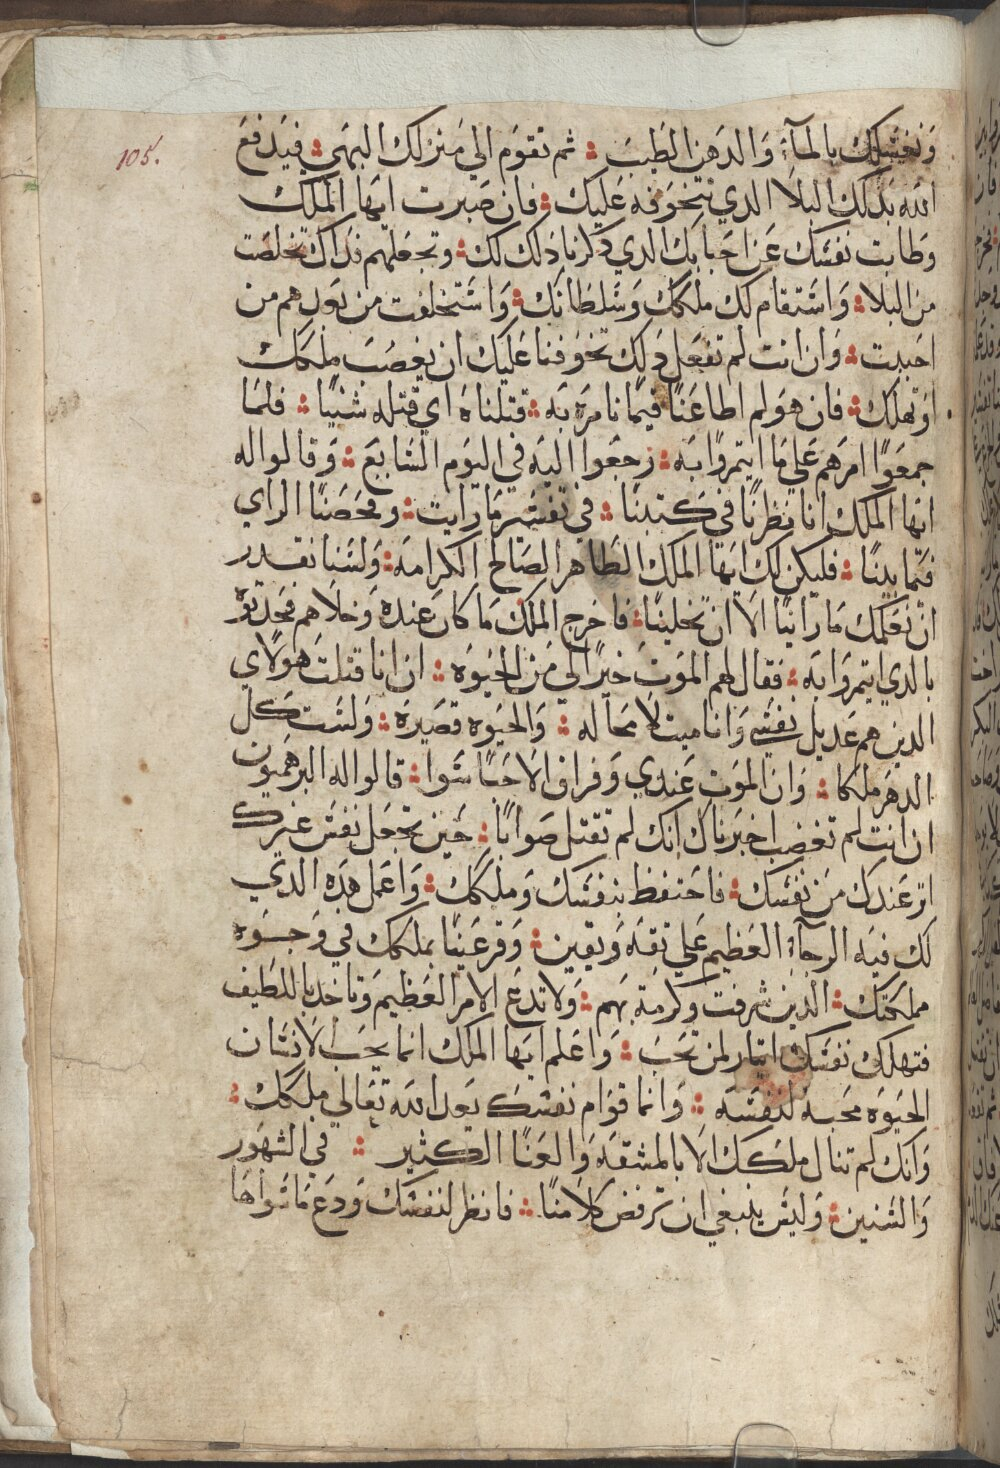 105.
ونغسلك بالمآء والدهن الطيب ؞ ثم تقوم الي منزلك البهي ؞ فيدفع
الله بذلك البلا الذي نتخوفه عليك ؞ فان صبرت ايها الملك
وطابت نفسك عن احبابك الذي ذكرنا ذلك لك ؞ وتجعلهم فداك تخلصت
من البلا ؞ واستقام لك ملكك وسلطانك ؞ واستخلفت من بعدهم من
احببت ؞ وان انت لم تفعل ذلك تخوفنا عليك ان يغصب ملكك
او تهلك ؞ فان هو لم اطاعنا فيما نامره به ؞ قتلناه اي قتله شئنا ؞ فلما
جمعوا امرهم علي ما ايتمروا به ؞ رجعوا اليه في اليوم السابع ؞ وقالوا له
ايها الملك انا نظرنا في كتبنا ؞ في تفسير ما رايت ؞ وفحصنا الراي
فيما بيننا ؞ فليكن لك ايها الملك الطاهر الصالح الكرامه ؞ ولسنا نقدر
ان نعلمك ما راينا الا ان تخلينا ؞ فاخرج الملك ما كان عنده وخلاهم فحدثوه
بالذي ايتمروا به ؞ فقال لهم الموت خيرا لي من الحيوه ؞ ان انا قتلت هولاي
الذين هم عديل نفسي وانا ميت لا محاله ؞ والحيوه قصيره ؞ ولست كل
الدهر ملكا ؞ وان الموت عندي وفراق الاحبا سوا ؞ قالوا له البرهميون
ان انت لم تغضب اخبرناك انك لم تقتل صوابا ؞ حين تجعل نفس غيرك
اثر عندك من نفسك ؞ فاحتفظ بنفسك وملكك ؞ واعمل هذه الذي
لك فيه الرجآء العظيم علي ثقه ويقين ؞ وقر عينا بملكك في وجوه
مملكتك ؞ الذين شرفت وكرمة بهم ؞ ولا تدع الامر العظيم وتاخذ باللطيف
فتهلك نفسك ايثار لمن تحب ؞ واعلم ايها الملك انما يحب الانسان
الحيوه محبه لنفسه ؞ وانما قوام نفسك بعد الله تعالي ملكك ؞
وانك لم تنال ملكك الا بالمشقه والعنا الكثير ؞ في الشهور
والسنين ؞ وليس ينبغي ان ترفض كلامنا ؞ فانظر لنفسك ودع ما سواها